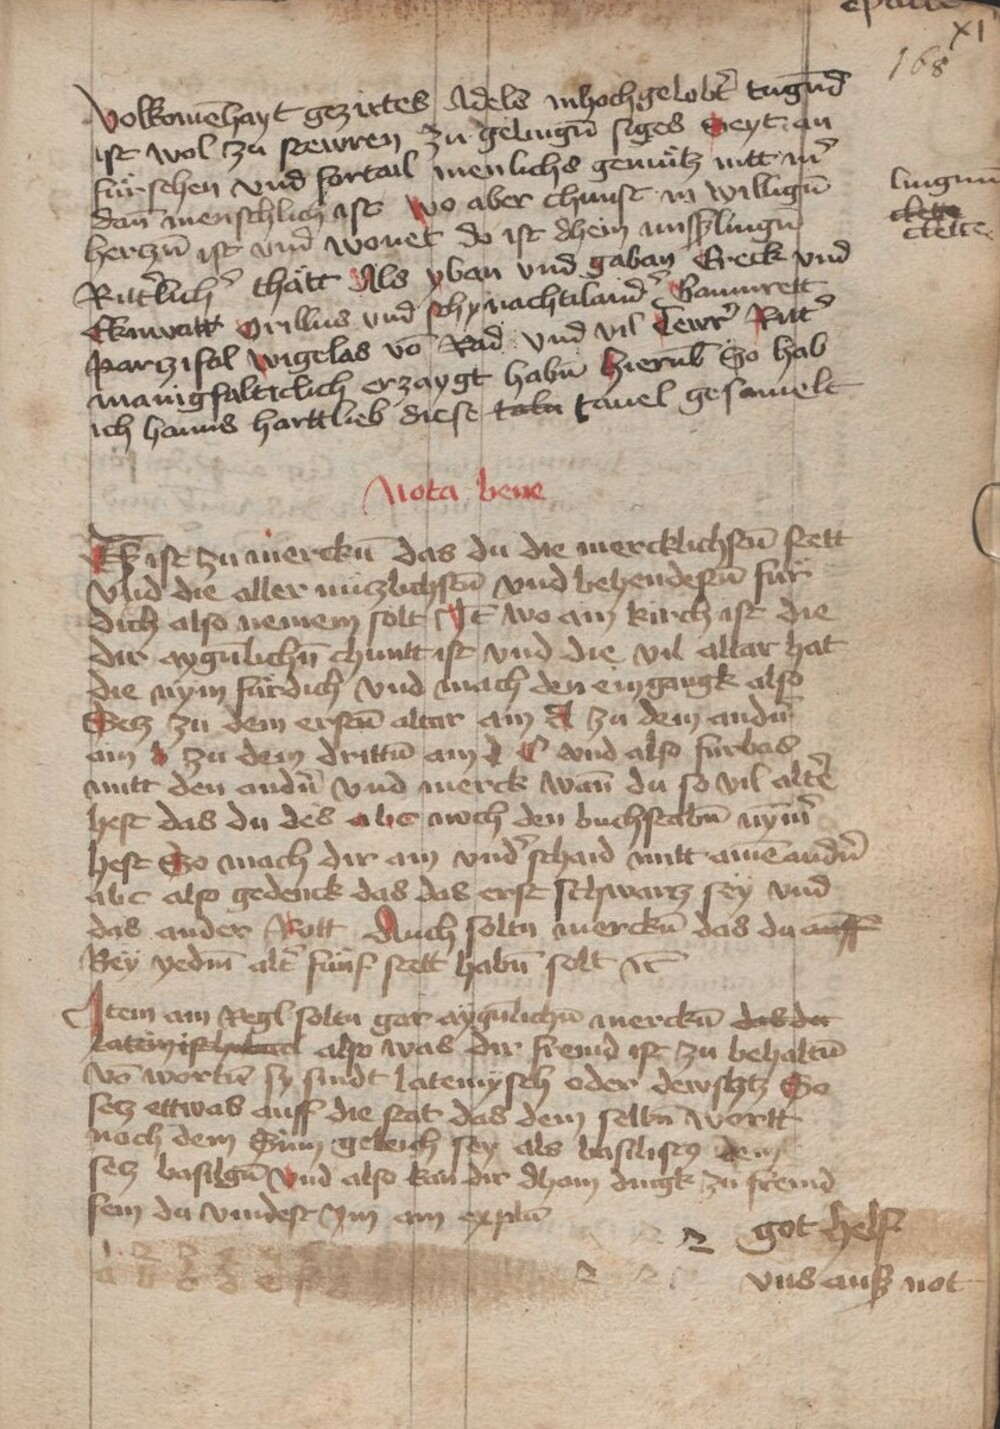 XI
168
Volkome͞hayt gezirtes Adels in hochgelobt᷑ tugn͞d
ist wol zu stewren zu gelingn͞ siges seyt an
fürsehen vnd fortail menlichs gemütz nitt m᷑
dan͞ menschlich ist wo aber chunst in willign͞
hertzn͞ ist vnd wonet do ist dhein missslingn͞
Ritt᷑lich᷑ thätt Als yban vnd gaban Ereck vnd
Orillus vnd schynachtiland᷑ Gamurett
partzifal wigelas vo͞ Rad vnd vil Tewr᷑ Ritt᷑
manigfalticlich erzaygt habn͞ hierüb So hab
ich hanns harttlieb diese tauel gesamelt
lingnn͞
Nota bene
Es ist zu merckn͞ das du die mercklichstn͞ stett
Vnd die aller nützlichstn͞ vnd behendestn͞ für
dich also nemem solt It͞ wo ain kirch ist die
dir aygn͞lichn͞ chuntt ist vnd die vil altar hat
die nym für dich vnd mach den eingangk also
Setz zu dem erstn͞ altar ain A zu dem andn͞
ain b zu dem drittn͞ ain c vnd also fürbas
mitt den andn͞ vnd merck wan͞ du so vil alt᷑e
hest das du des abc noch den buchstabn͞ nym᷑
hest So mach dir ain vnd᷑schaid mitt aine͞ andn͞
abc also gedenck das das erst schwartz sey vnd
das ander Rott Auch soltu merckn͞ das du auff
Bey yedm͞ alt᷑ fünf stett habn͞ solt it͞
Item ain Regl soltu gar aygn͞lichn͞ merckn͞ das du
also was dir fremd ist zu behaltn͞
vo͞ wortn͞ sy sindt lateinysch oder dewschtz So
setz ettwas auff die stat das dem selbn͞ wortt
noch dem Sinn geleich sey als basiliscꝰ dem
setz basilgn͞ vnd also kan dir dhain dingk zu fremd
sein du vindest ym ain expln͞
got helf
vns auß not